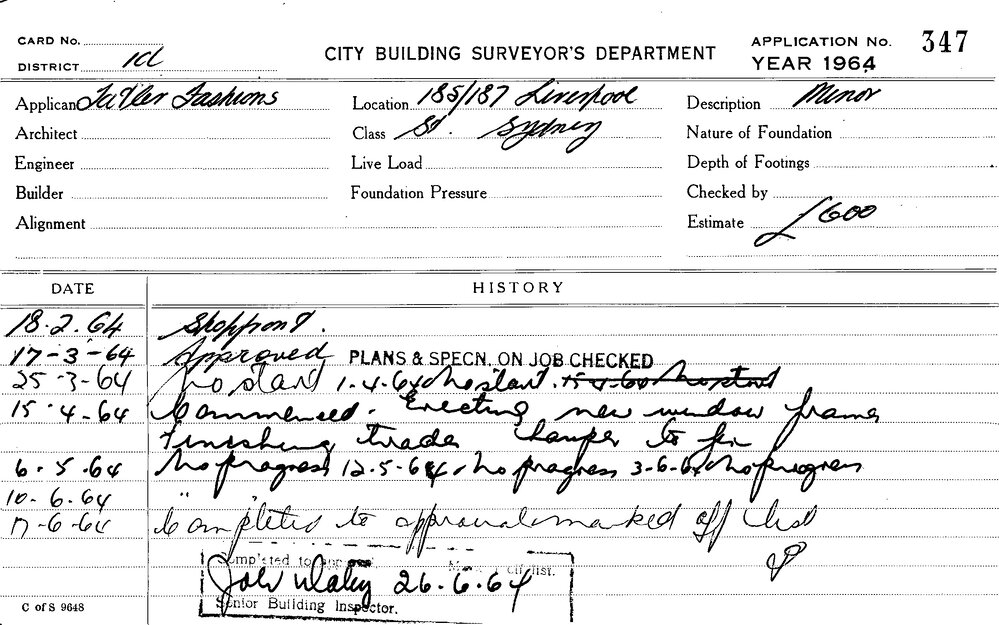 CARD No.
DISTRICT
CITY BUILDING SURVEYOR'S DEPARTMENT
APPLICATION No. 347
YEAR 1964
Applicant Fashions
Location 185/187 Liverpool
Description Minor
Architect
Class St. Sydney
Nature of Foundation
Engineer
Live Load
Depth of Footings
Builder
Foundation Pressure
Checked by
Alignment
Estimate £600
DATE HISTORY
18.2.64 Shopfront.
17-3-64 Approved PLANS & SPECN. ON JOB CHECKED
25-3-64 No start 1-4-64 No start. 15-4-60 No start
15.4-64 Commenced. Erecting new window frame
Finishing trades to
6.5.64 No progress 12-5-64 No progress 3-6-64 No progress
10-6.64 " "
17-6-64 Completed to approval & marked off list
Completed to approval Marked off list.
26.6.64
Senior Building Inspector.
C of S 9648